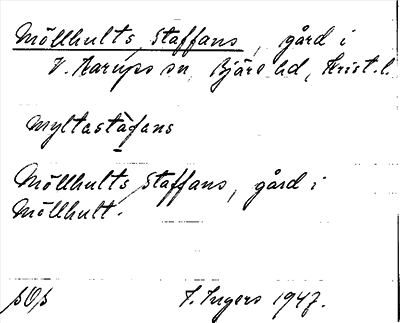 Möllhults Staffans, gård i
V. Karups sn, Bjäre hd, Krist. l.
Myltastàfans
Möllhults Staffans, gård i
Möllhult.
I. Ingers 1947.